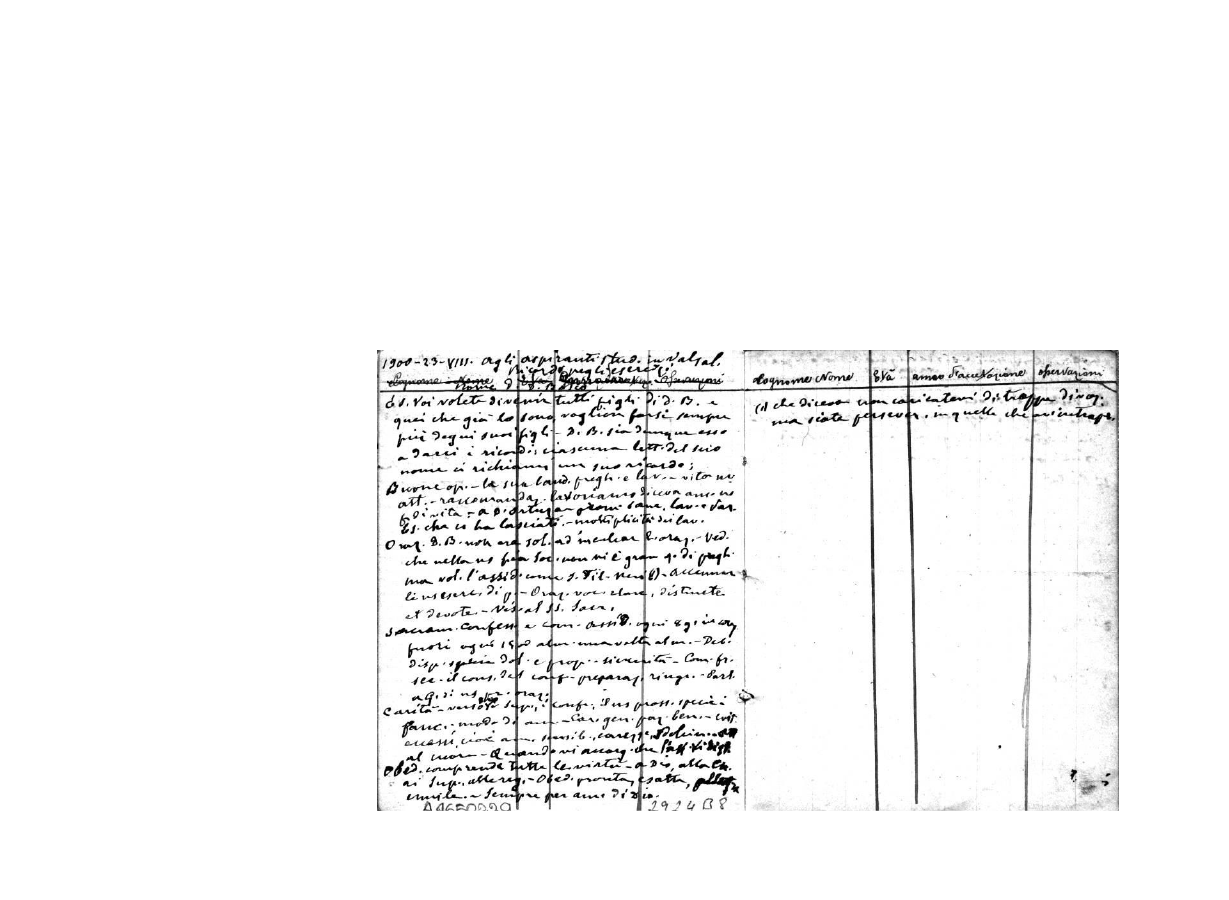 1900-23-VIII. Agli aspiranti stud. in Valsal.
Ricordo negli eserc.
Cognome e Nome Osservazioni
nome D. Bosco
Es. Voi volete divenir tutti figli di D. B. e
quei che già lo sono voglion farsi sempre
più degni suoi figli - D. B. sia dunque esso
a darci i ricordi; ciascuna lett. del suo
nome ci richiami un suo ricordo;
Buone op. - la sua laud. pregh. e lav. - vita
att. - raccomandaz. lavoriamo diceva
di vita - a D.
Es. che ci ha lasciati - moltiplicità dei lav.
Oraz. D. B. non era sol. ad inculcar l'oraz. - Ved.
che nella ns pia Soc. non vi è gran q. di pregh.
ma vol. l'assid. come S. Fil. Neri (1) - Accennar
le ns eserc. di p. - Oraz. voc. clare, distincte
et devote. - Vis. al SS. Sacr.
Sacram. Confess. e com. assid. ogni 8 g. i
fuori ogni 15 o alm. una volta al m. - Deb.
disp. specie dol. e prop. - sincerità - Com. fr.
sec. il cons. del conf. - preparaz. ringr. - Part.
a G. di ns oraz.
Carità - verso Dio Sup., i conf. I ns pross. specie i
fanc. - modo di am. - Car. gen. paz. ben. -
eccessi, cioè am. sensib., carezze,
al cuore - Quando vi accorg. che
Obed. comprende tutte le virtù - a Dio, alla Ch.
ai Sup., alle reg. - Obed. pronta, esatta, allegra
umile. - Sempre per am. di Dio.
A4650229 2924B8
Cognome Nome Età anno d'accettazione Osservazioni
(1) che diceva non caricatevi di troppe divoz.
ma siate persever. in quelle che avi intrapr.